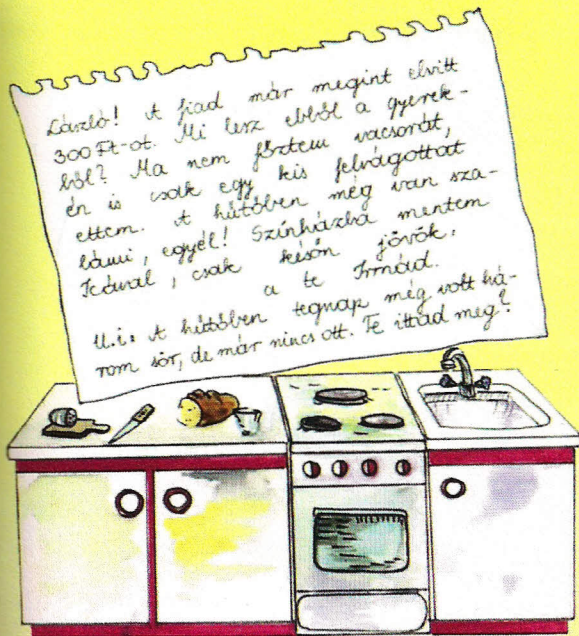 László! A fiad már megint elvitt
300 Ft-ot. Mi lesz ebből a gyerek-
ből? Ma nem főztem vacsorát,
én is csak egy kis felvágottat
ettem. A hűtőben még van sza-
lámi, egyél! Színházba mentem
Icával, csak későn jövök.
a te Irmád.
U.i. A hűtőben tegnap még volt há-
rom sör, de már nincs ott. Te ittad meg?